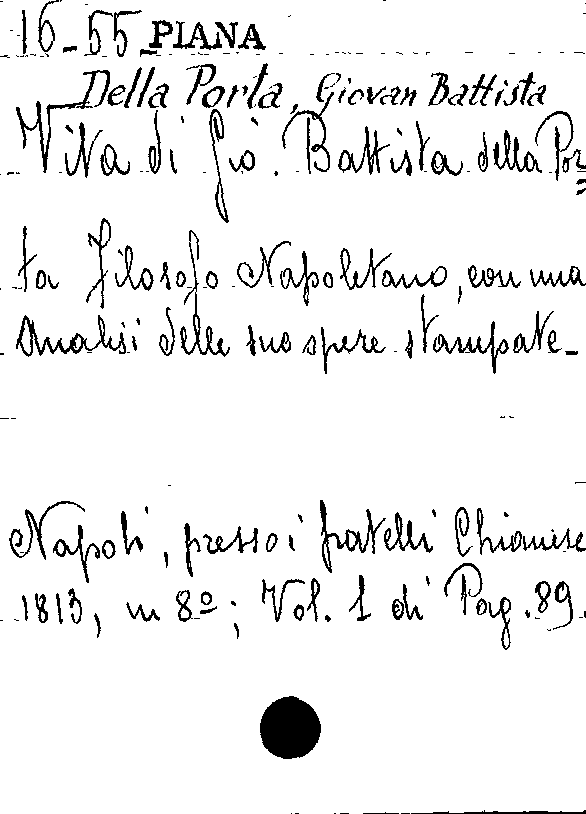 16-55 PIANA
Della Porta, Giovan Battista
Vita di Gio. Battista della Por=
ta filosofo Napoletano, con una
Analisi delle sue opere stampate-
Napoli, presso i fratelli Chianese
1813, in 8º; Vol. 1 di Pag. 89.